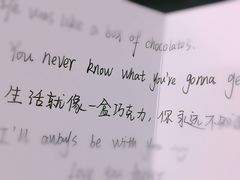 life was like a box of chocolates.
You never know what you're gonna ge
生活就像一盒巧克力，你永远不知道
I'll always be with
Love you